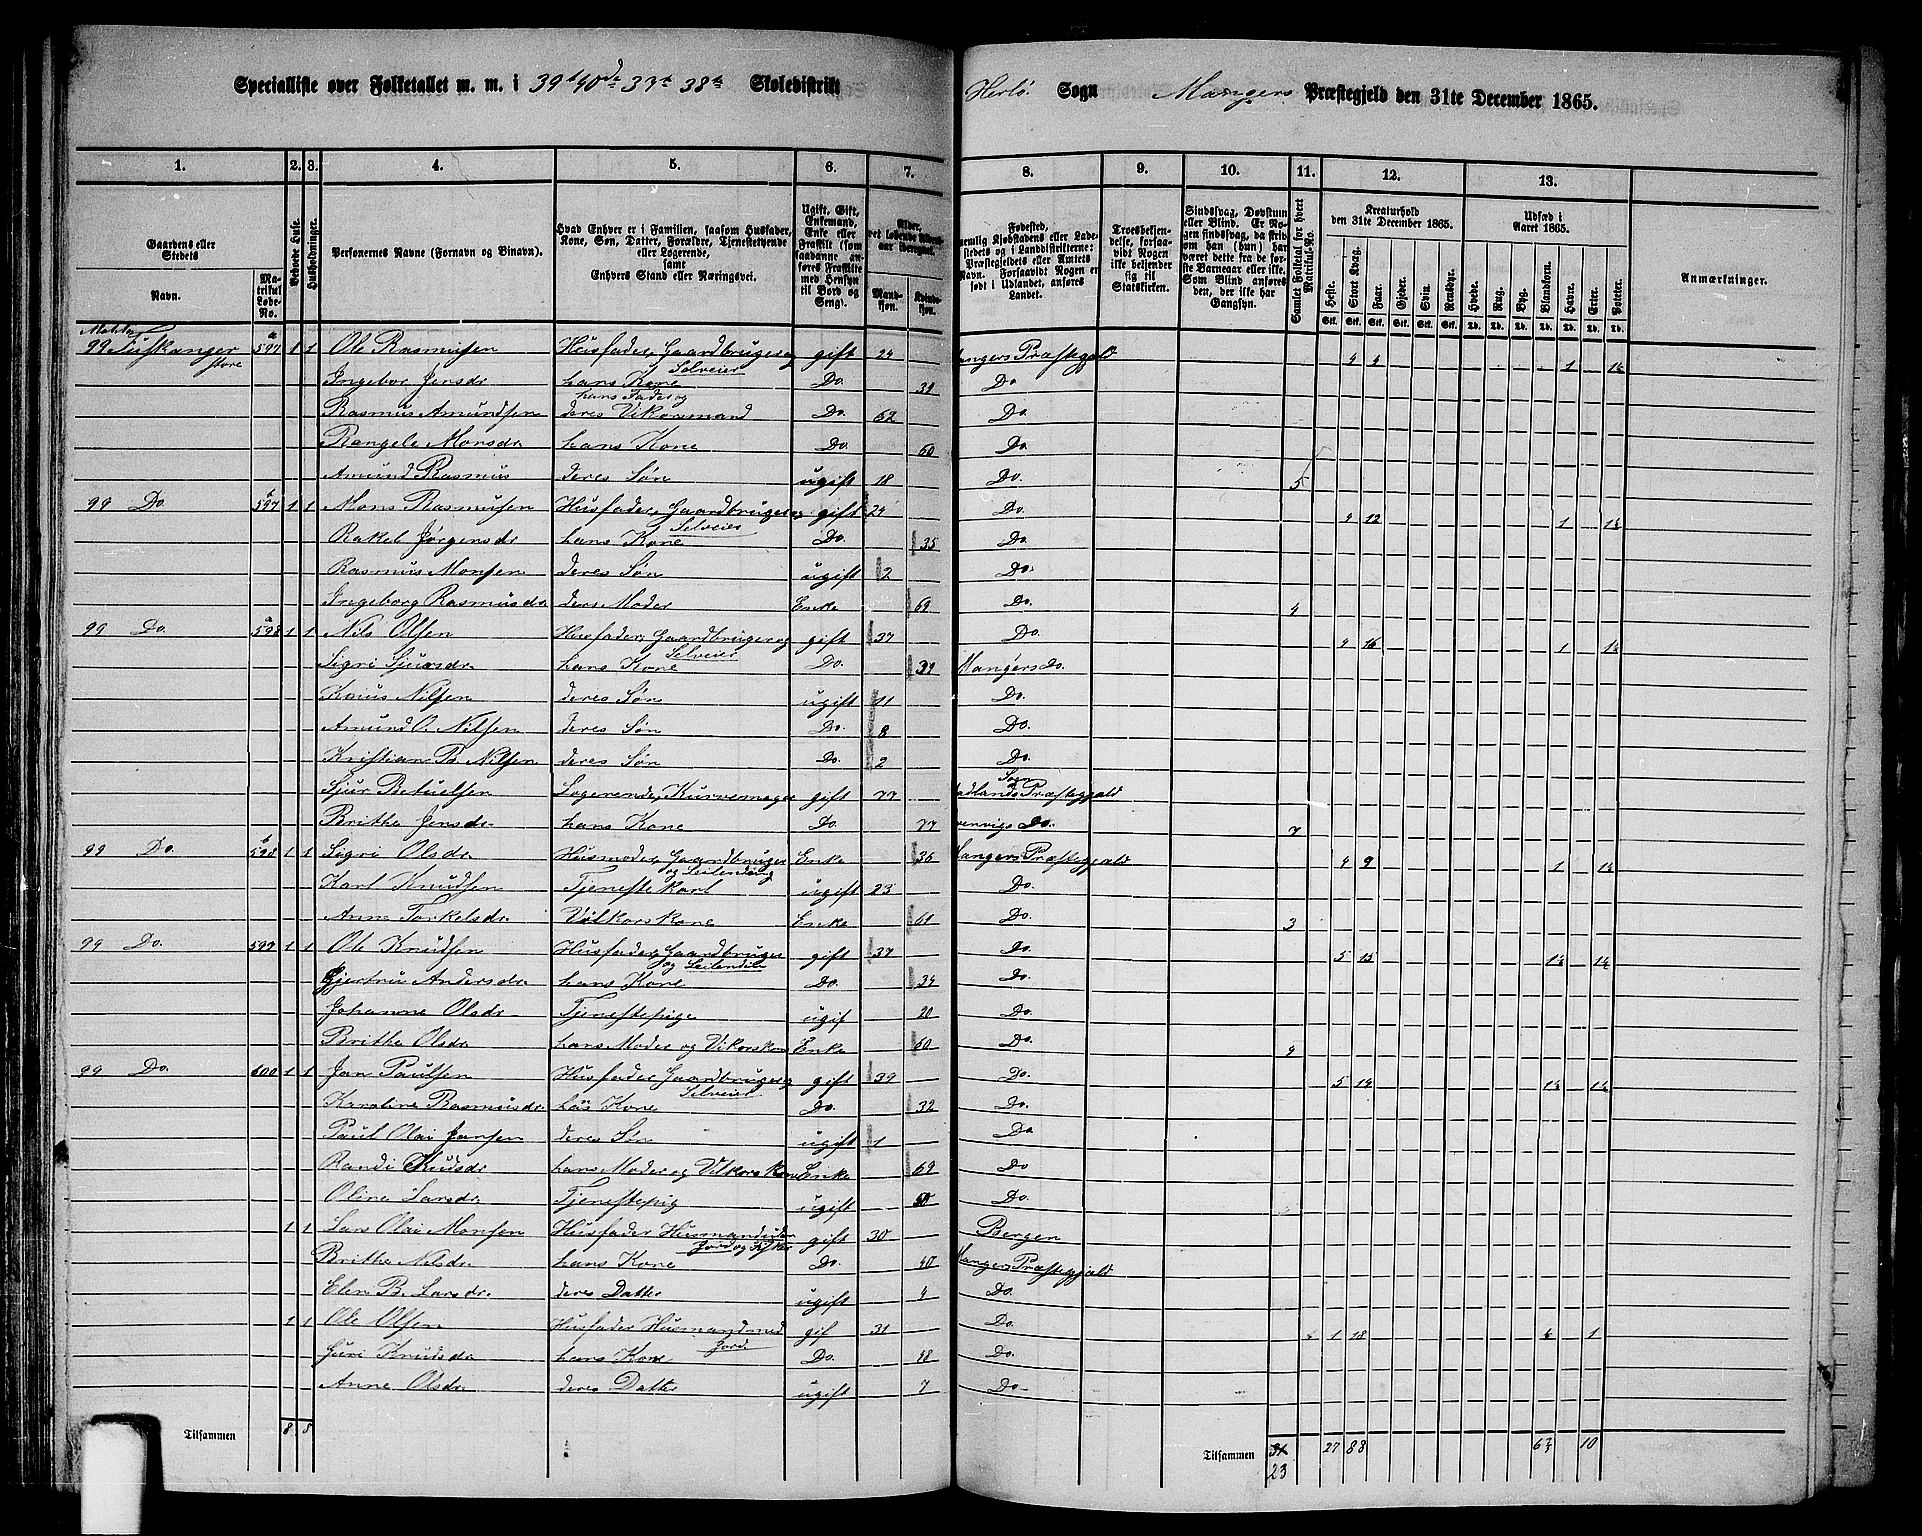 Specialliste over Folketallet m. m. i 39te 40de 37te 38te Skoledistrikt Herlö Sogn Mangers Præstegjeld den 31te December 1865.
1. 2. 3. 4. 5. 6. 7. 8. 9. 10. 11. 12. 13.
Gaardens eller Stedets Navn. Matrikul Løbe-No. Beboede Huse. Husholdninger. Personernes Navne (Fornavn og Binavn).
Hvad Enhver er i Familien, saasom Husfader, Kone, Søn, Datter, Forældre, Tjenestetyende eller Logerende, samt Enhvers Stand eller Næringsvei.
Ugift, Gift, Enkemand, Enke eller Fraskilt (som saadanne anføres Fraskilte med Hensyn til Bord og Seng).
Mandkjøn. Kvindekjøn.
Troesbekjendelse, forsaavidt Nogen ikke bekjender sig til Statskirken.
Samlet Folketal for hvert Matrikul-No.
Kreaturhold den 31te December 1865. Heste. Stort Kvæg. Faar. Gjeder. Svin. Rensdyr.
Udsæd i Aaret 1865. Hvede. Rug. Byg. Blandkorn. Havre. Erter. Poteter.
Anmærkninger.
99 597 a 1 1 Ole Rasmussen Husfader, Gaardbruger og Selveier gift 24 Mangers Præstegjæld 4 4 1
store
Ingebor Jensdr hans Kone Do. Do
Rasmus Amundsen hans Fader og deres Vikorsmand Do. 62 Do.
Rangele Monsdr hans Kone Do. 60 Do.
Amund Rasmus deres Søn ugift 18 Do. 5
99 Do. 597 b 1 1 Mons Rasmussen Husfader, Gaardbruger og Selveier gift 24 Do. 4 12 1
Rakel Jørgensdr hans Kone Do. 35 Do.
Rasmus Monsen deres Søn ugift 2 Do.
Ingeborg Rasmusdr deres Moder Enke 69 Do. 4
99 Do. 598 a 1 1 Nils Olsen Husfader, Gaardbruger og Selveier gift 37 Do. 4 16 1
Sigri Sjursdr hans Kone Do. 39 Mangers Do.
Knus Nilsen deres Søn ugift 11 Do.
Amund O. Nilsen deres Søn Do. 8 Do.
Kristian R. Nilsen deres Søn Do. 2 Do.
Sjur Betuelsen Logerende, Kurvemager gift 77 Præstegjald
Brithe Jensdr hans Kone Do. 77 Do. 7
99 Do. 598 b 1 1 Sigri Olsdr Husmoder, Gaardbruger og Leilending Enke 36 Mangers Præstegjæld 4 9 1
Karl Knudsen Tjenestekarl ugift 23 Do.
Anne Torkelsdr Vilkorskone Enke 61 Do. 3
99 Do. 599 1 1 Ole Knudsen Husfader, Gaardbruger og Leilendin gift 37 Do. 5 15
Gjertrui Andersdr hans Kone Do. 34 Do.
Johanne Olsdr Tjenestepige ugif 20 Do.
Brithe Olsdr hans Moder og Vikorskone Enke 60 Do. 4
99 Do. 600 1 1 Jan Paulsen Husfader Gaardbruger og Selveier gift 39 Do. 5 14
Karoline Rasmusdr hans Kone Do. 32 Do.
Paul Olai Jansen deres Søn ugift 1 Do
Randi Knudsdr hans Moder og Vilkorskone Enke 69 Do
Oline Larsdr Tjenestepig ugift Do.
1 1 Lars Olai Monsen Husfader Husmand uden Jord og Fisker gift 30 Bergen
Brithe Nilsdr hans Kone Do. 40 Mangers Præstegjæld
Elen B. Larsdr deres Datter ugift 4 Do.
1 1 Ole Olsen Husfader Husmand med Jord gif 31 Do. 1 18 1
Guri Knudsdr hans Kone Do. 48 Do.
Anne Olsdr deres Datter ugift 7 Do
Tilsammen 8 8
Tilsammen 31 23 27 88 10